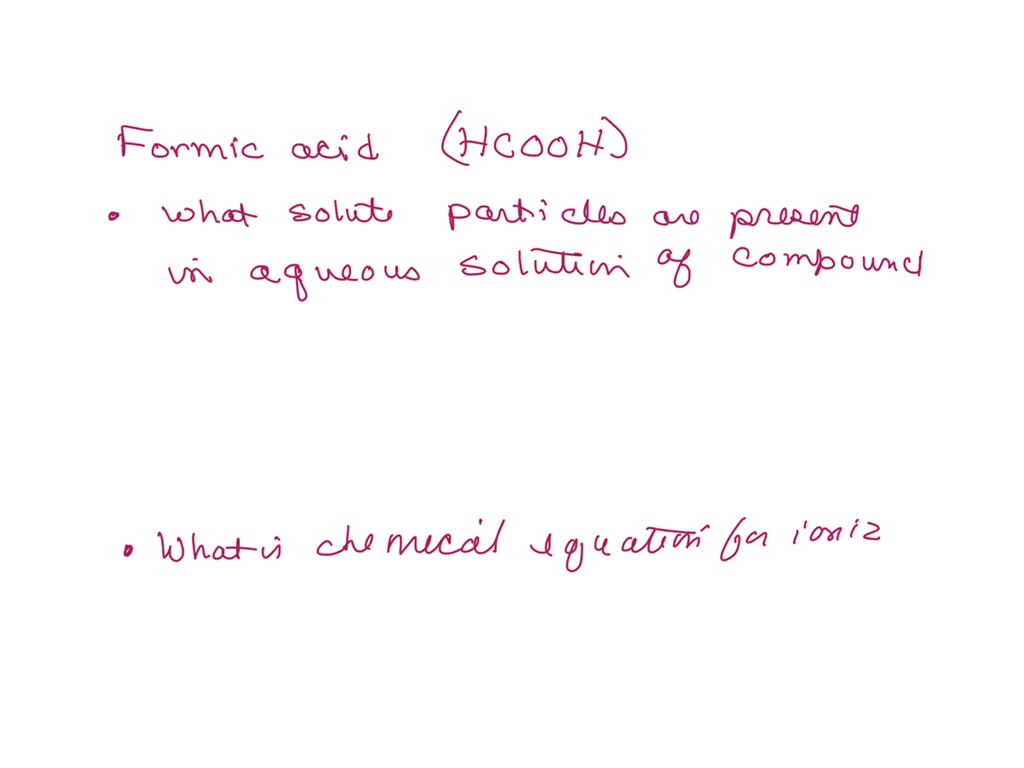 Formic acid (HCOOH)
• what solute particles are present
in aqueous solution of compound
• What is chemical equation for ioniz